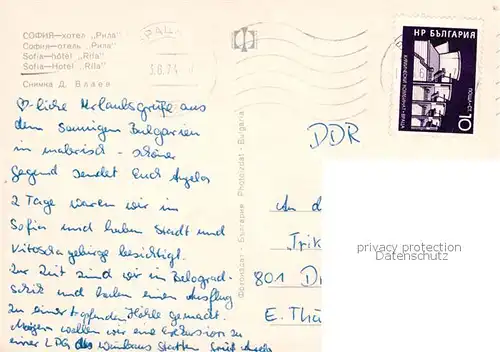 СОФИЯ—хотел „Рила“
София—отель „Рила“
Sofia—hôtel "Rila"
Sofia—Hotel "Rila"
Снимка Д. Влаев
НР БЪЛГАРИЯ
10
Фотоиздат - България Photoizdat - Bulgaria
♡-liche Urlaubsgrüße aus
dem sonnigen Bulgarien
in malerisch - schöner
Gegend sendet Euch Angela
2 Tage waren wir in
Sofia und haben Stadt und
Vitoschagebirge besichtigt.
Zur Zeit sind wir in Belograd-
schik und haben einen Ausflug
zu einer Tropfenden Höhle gemacht.
Morgen wollen wir eine Exkursion zu
einer LPG des Weinbaus starten
DDR
An d
Trik
801 D
E. Thä
privacy protection
Datenschutz